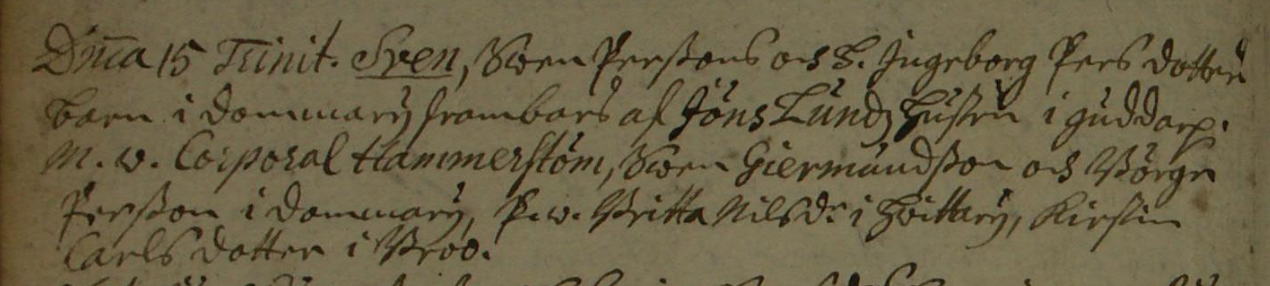 Dnīca 15 Trinit. Sven, Swen Perssons och H. Ingeborg Pers dotters
barn i dommarÿ frambars af Jöns Lundz hustru i guddarp.
M. w. Corporal Hammerstöm, Swen Giermundsson och Börge
Persson i dommarÿ, P. w. Britta Nilsdr i hvittarÿ, Kirstin
Carls dotter i Broo.